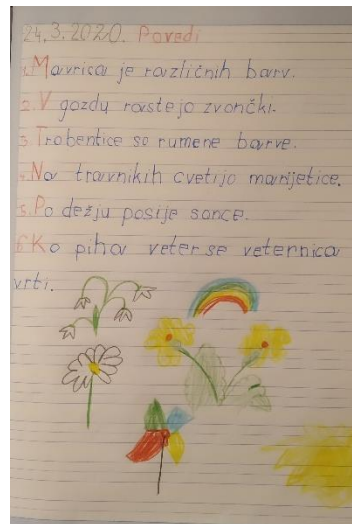 24.3.2020. Povedi
1. Mavrica je različnih barv.
2. V gozdu rastejo zvončki.
3. Trobentice so rumene barve.
4. Na travnikih cvetijo marijetice.
5. Po dežju posije sonce.
6. Ko piha veter se veternica
vrti.